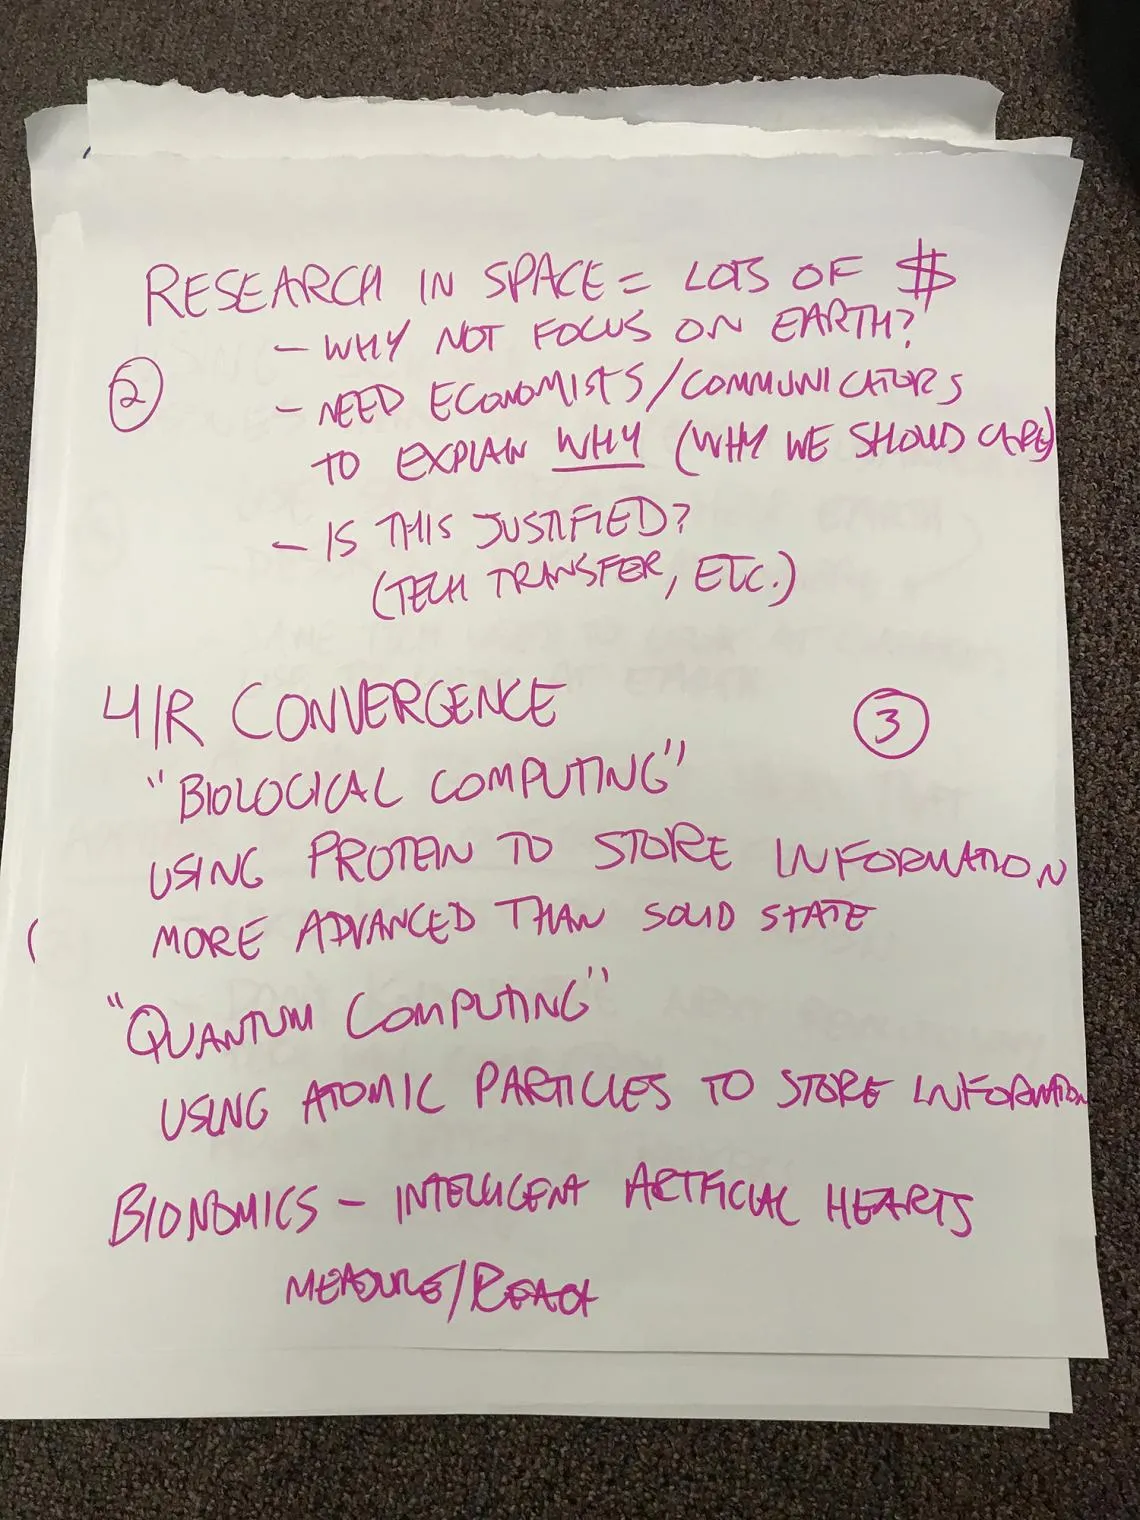 RESEARCH IN SPACE = LOTS OF $
- WHY NOT FOCUS ON EARTH?
②
- NEED ECONOMISTS/COMMUNICATORS
TO EXPLAIN WHY (WHY WE SHOULD CARE)
- IS THIS JUSTIFIED?
(TECH TRANSFER, ETC.)
4IR CONVERGENCE
③
"BIOLOGICAL COMPUTING"
USING PROTEIN TO STORE INFORMATION
MORE ADVANCED THAN SOLID STATE
"QUANTUM COMPUTING"
USING ATOMIC PARTICLES TO STORE INFORMATION
BIONOMICS - INTELLIGENT ARTIFICIAL HEARTS
MEASURE/REACT